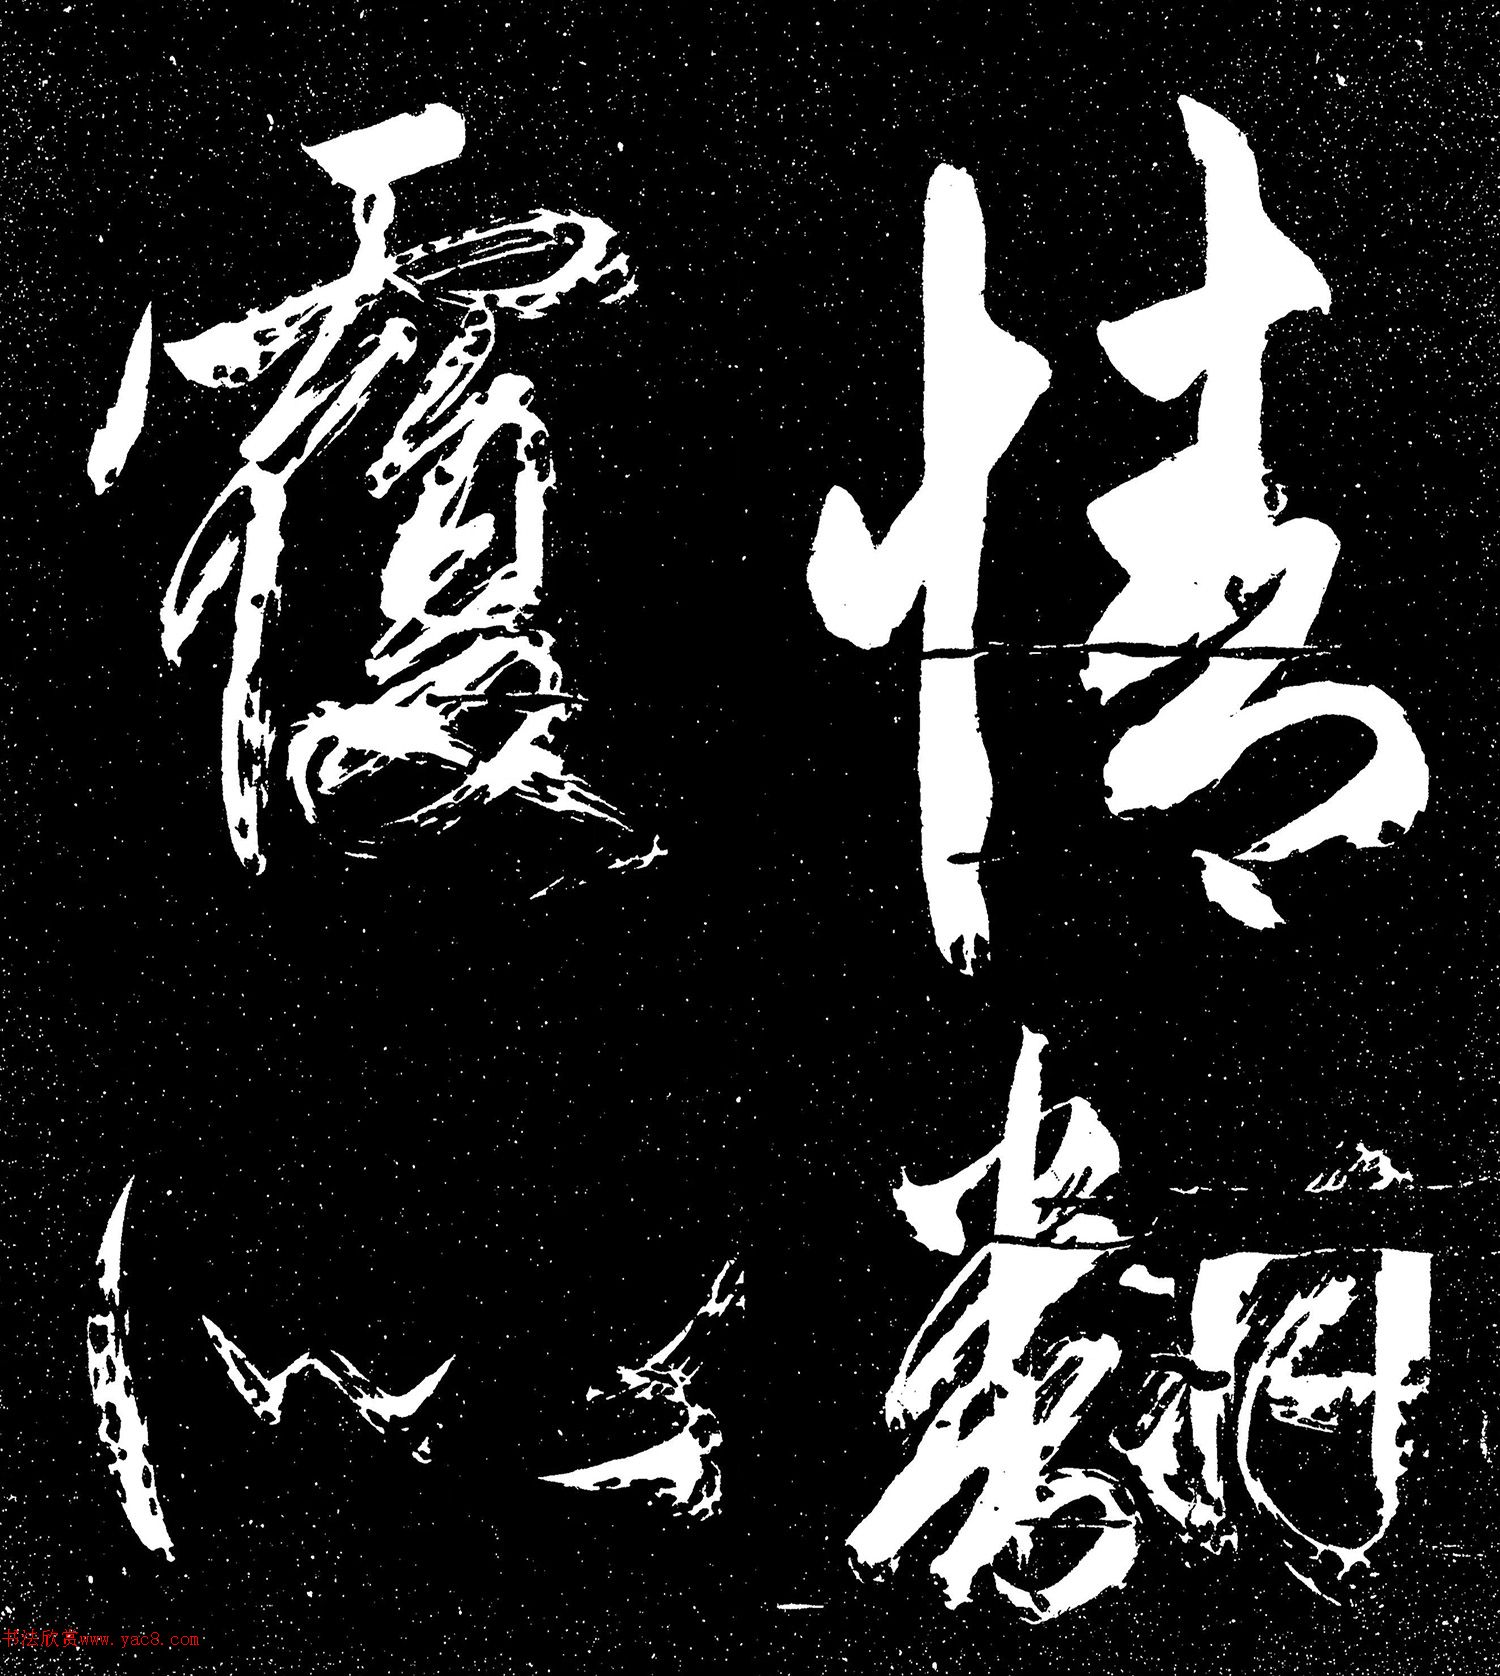 情翻
覆似
书法欣赏www.yac8.com